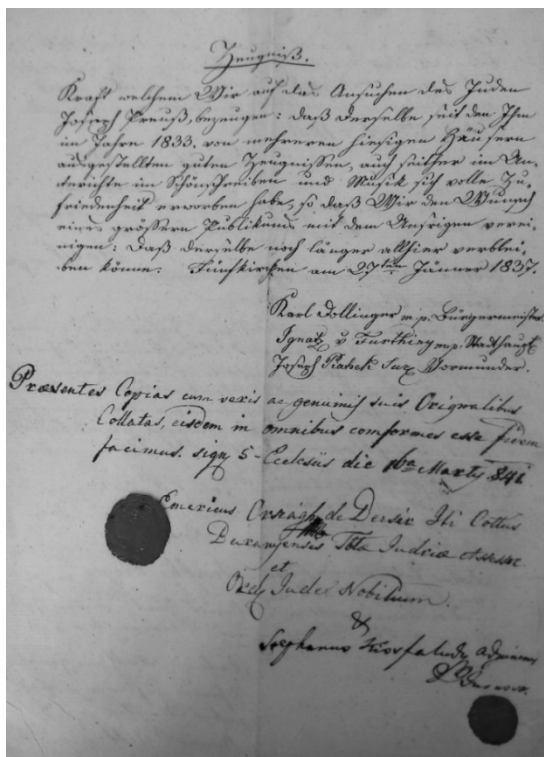 Zeugniß.
Kraft welchem Wir auf das Ansuchen des Juden
Joseph Preuß, bezeugen: daß derselbe seit den Ihm
im Jahre 1833. von mehreren hiesigen Häusern
ausgestellten guten Zeugnissen, auch seither im Un-
terrichte im Schönschreiben und Musik sich volle Zu-
friedenheit erworben habe, so daß Wir den Wunsch
eines grössern Publikums mit dem Unsrigen verei-
nigen: daß derselbe noch länger allhier verblei-
ben könne. Fünfkirchen am 27ten Jänner 1837.
Karl Dollinger m.p. Bürgermeister
Ignatz v m.p. Stadthaupt
Joseph Vormunder.
Præsentes Copias cum veris ac genuinis suis Originalibus
Collatas, eisdem in omnibus comformes esse fidem
facimus. sign 5-Ecclesiis die Martÿ 841
Emericus de Dersix Cottus
Baranyensis Judriæ Assessor
et
Judex Nobilium.
&
Stephanus Kisfaludy